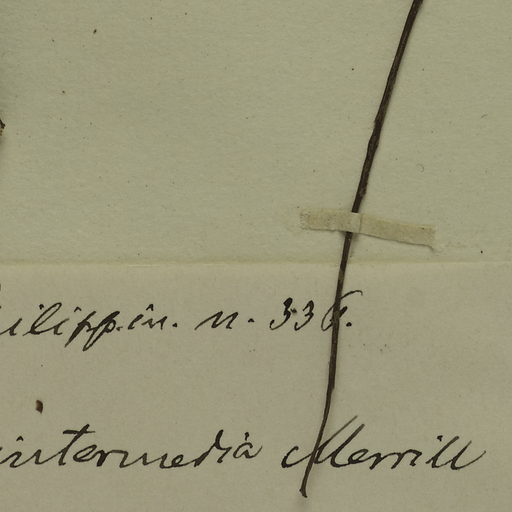 ilippin. n. 336.
intermedia Merrill